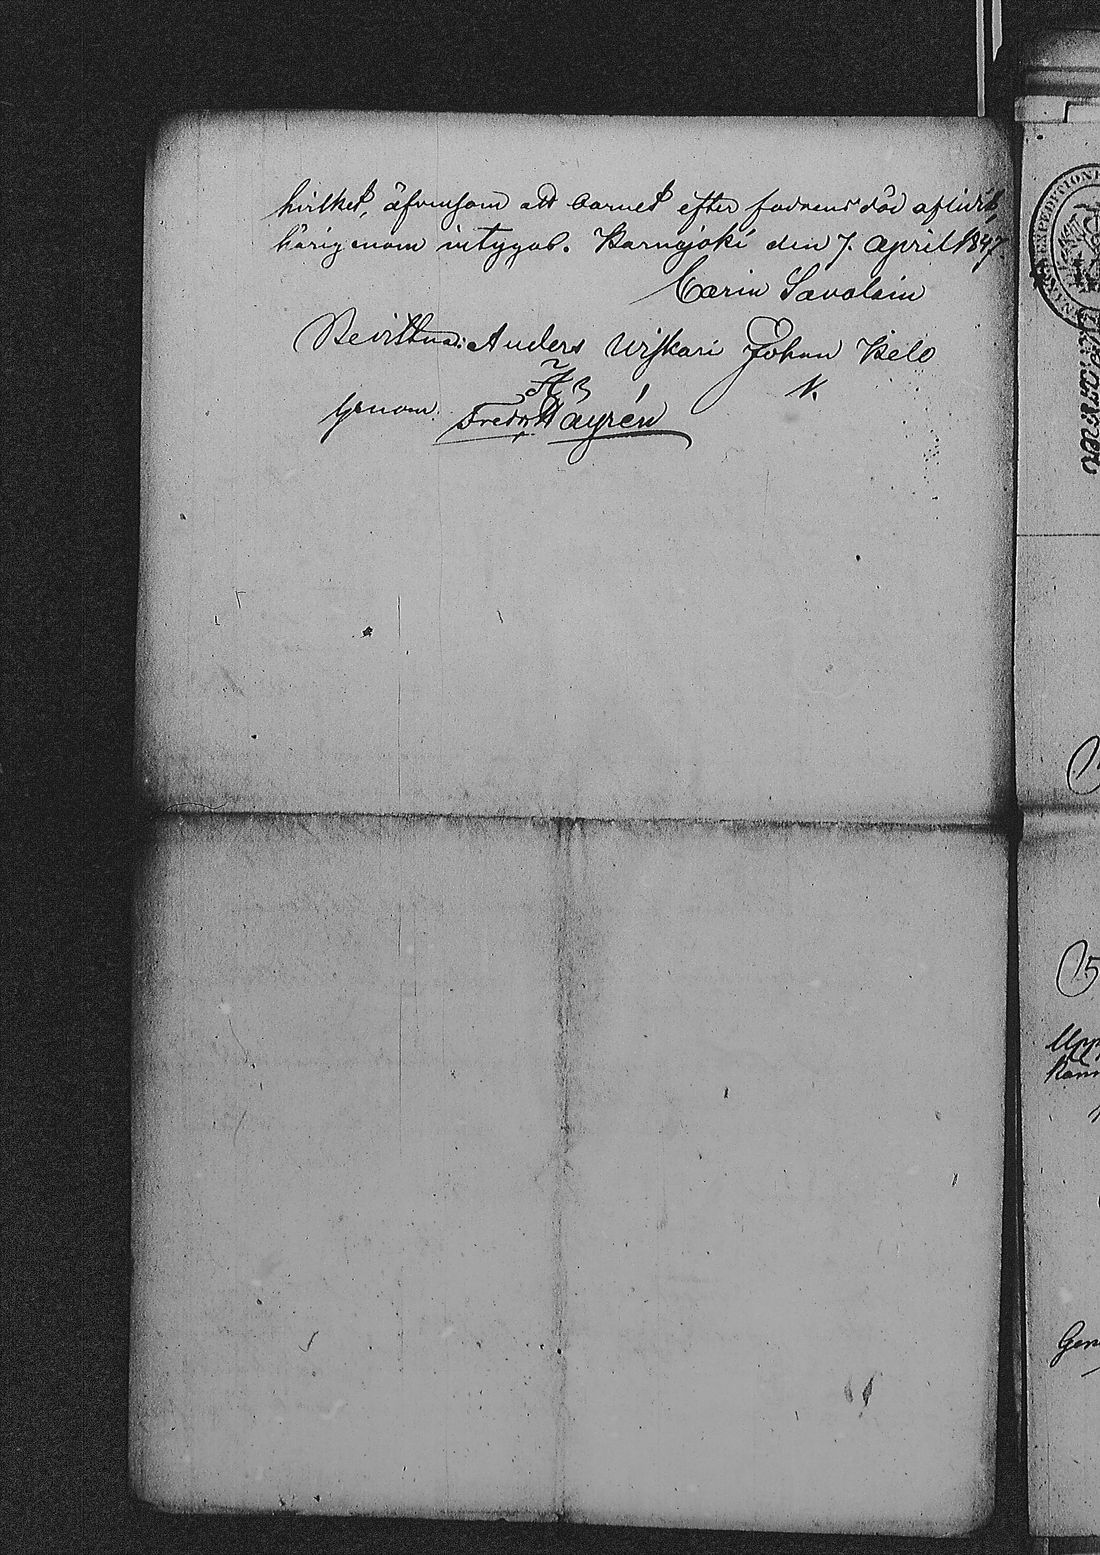 hvilket, äfvensom att barnet efter fadrens död aflidit,
härigenom intygas. Kangjoki den 7. April 1847.
Carin Savolain
Bevittna: Anders Wiskari Johan Kelo
genom Fredr. Hayrén
EXPEDITION
(5
Upp
Gen